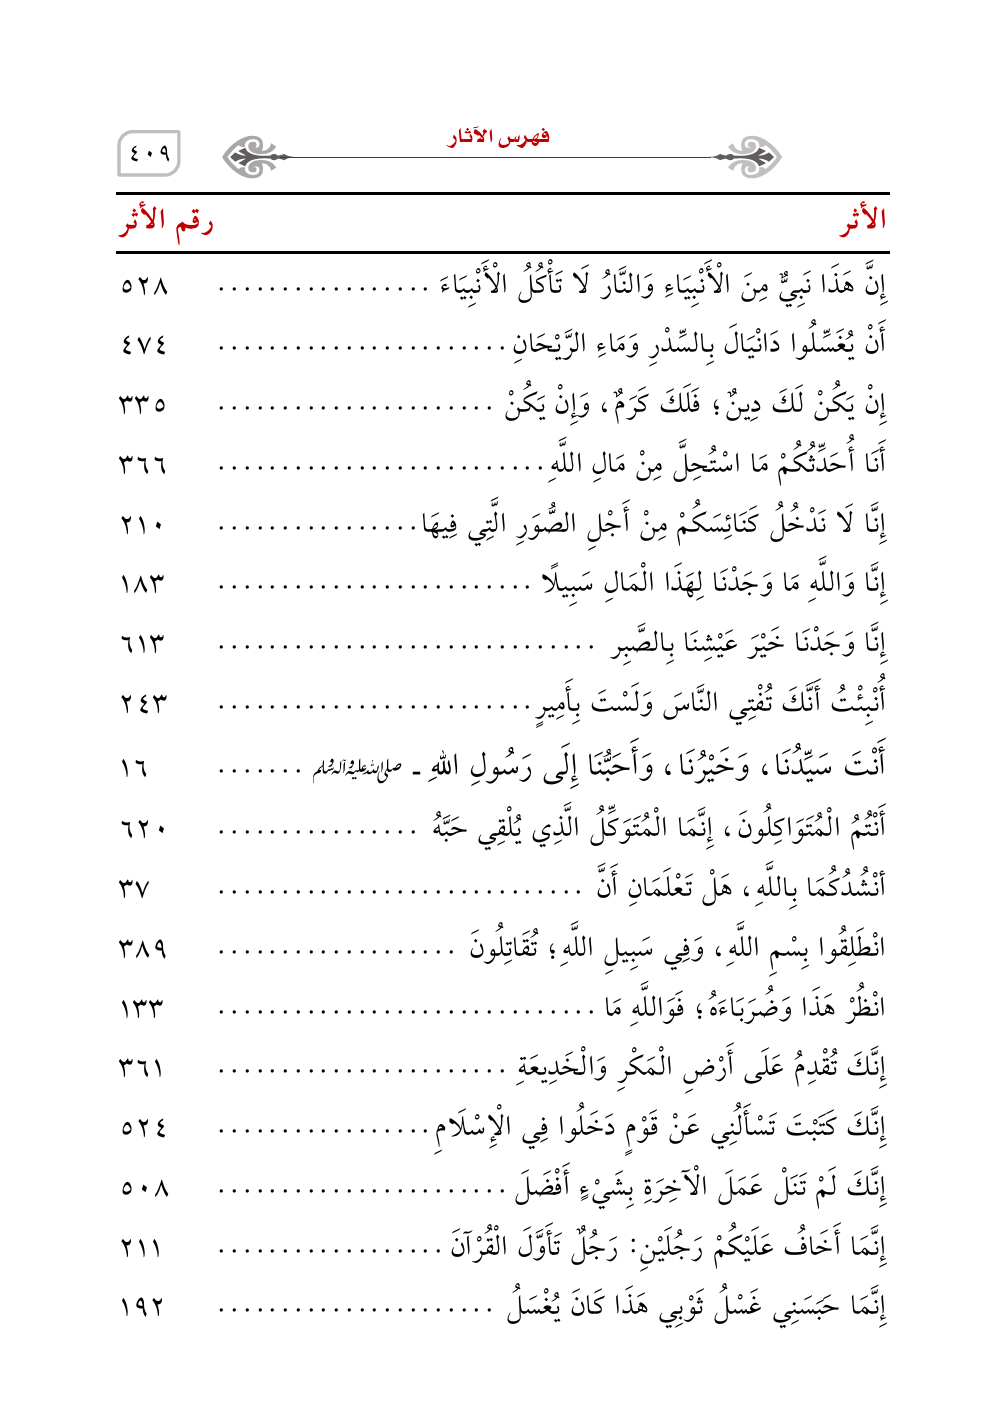 فهرس الآثار
٤٠٩
الأثر رقم الأثر
إِنَّ هَذَا نَبِيٌّ مِنَ الْأَنْبِيَاءِ وَالنَّارُ لَا تَأْكُلُ الْأَنْبِيَاءَ ................. ٥٢٨
أَنْ يُغَسِّلُوا دَانْيَالَ بِالسِّدْرِ وَمَاءِ الرَّيْحَانِ ....................... ٤٧٤
إِنْ يَكُنْ لَكَ دِينٌ؛ فَلَكَ كَرَمٌ، وَإِنْ يَكُنْ ...................... ٣٣٥
أَنَا أُحَدِّثُكُمْ مَا اسْتُحِلَّ مِنْ مَالِ اللَّهِ .......................... ٣٦٦
إِنَّا لَا نَدْخُلُ كَنَائِسَكُمْ مِنْ أَجْلِ الصُّوَرِ الَّتِي فِيهَا ................ ٢١٠
إِنَّا وَاللَّهِ مَا وَجَدْنَا لِهَذَا الْمَالِ سَبِيلًا ......................... ١٨٣
إِنَّا وَجَدْنَا خَيْرَ عَيْشِنَا بِالصَّبِر .............................. ٦١٣
أُنْبِئْتُ أَنَّكَ تُفْتِي النَّاسَ وَلَسْتَ بِأَمِيرٍ ......................... ٢٤٣
أَنْتَ سَيِّدُنَا، وَخَيْرُنَا، وَأَحَبُّنَا إِلَى رَسُولِ اللهِ ـ صلى الله عليه وآله وسلم ....... ١٦
أَنْتُمُ الْمُتَوَاكِلُونَ، إِنَّمَا الْمُتَوَكِّلُ الَّذِي يُلْقِي حَبَّهُ ................ ٦٢٠
أنْشُدُكُمَا بِاللَّهِ، هَلْ تَعْلَمَانِ أَنَّ ............................. ٣٧
انْطَلِقُوا بِسْمِ اللَّهِ، وَفِي سَبِيلِ اللَّهِ؛ تُقَاتِلُونَ ................... ٣٨٩
انْظُرْ هَذَا وَضُرَبَاءَهُ؛ فَوَاللَّهِ مَا .............................. ١٣٣
إِنَّكَ تُقْدِمُ عَلَى أَرْضِ الْمَكْرِ وَالْخَدِيعَةِ ....................... ٣٦١
إِنَّكَ كَتَبْتَ تَسْأَلُنِي عَنْ قَوْمٍ دَخَلُوا فِي الْإِسْلَامِ ................. ٥٢٤
إِنَّكَ لَمْ تَنَلْ عَمَلَ الْآخِرَةِ بِشَيْءٍ أَفْضَلَ ....................... ٥٠٨
إِنَّمَا أَخَافُ عَلَيْكُمْ رَجُلَيْنِ: رَجُلٌ تَأَوَّلَ الْقُرْآنَ .................. ٢١١
إِنَّمَا حَبَسَنِي غَسْلُ ثَوْبِي هَذَا كَانَ يُغْسَلُ ...................... ١٩٢